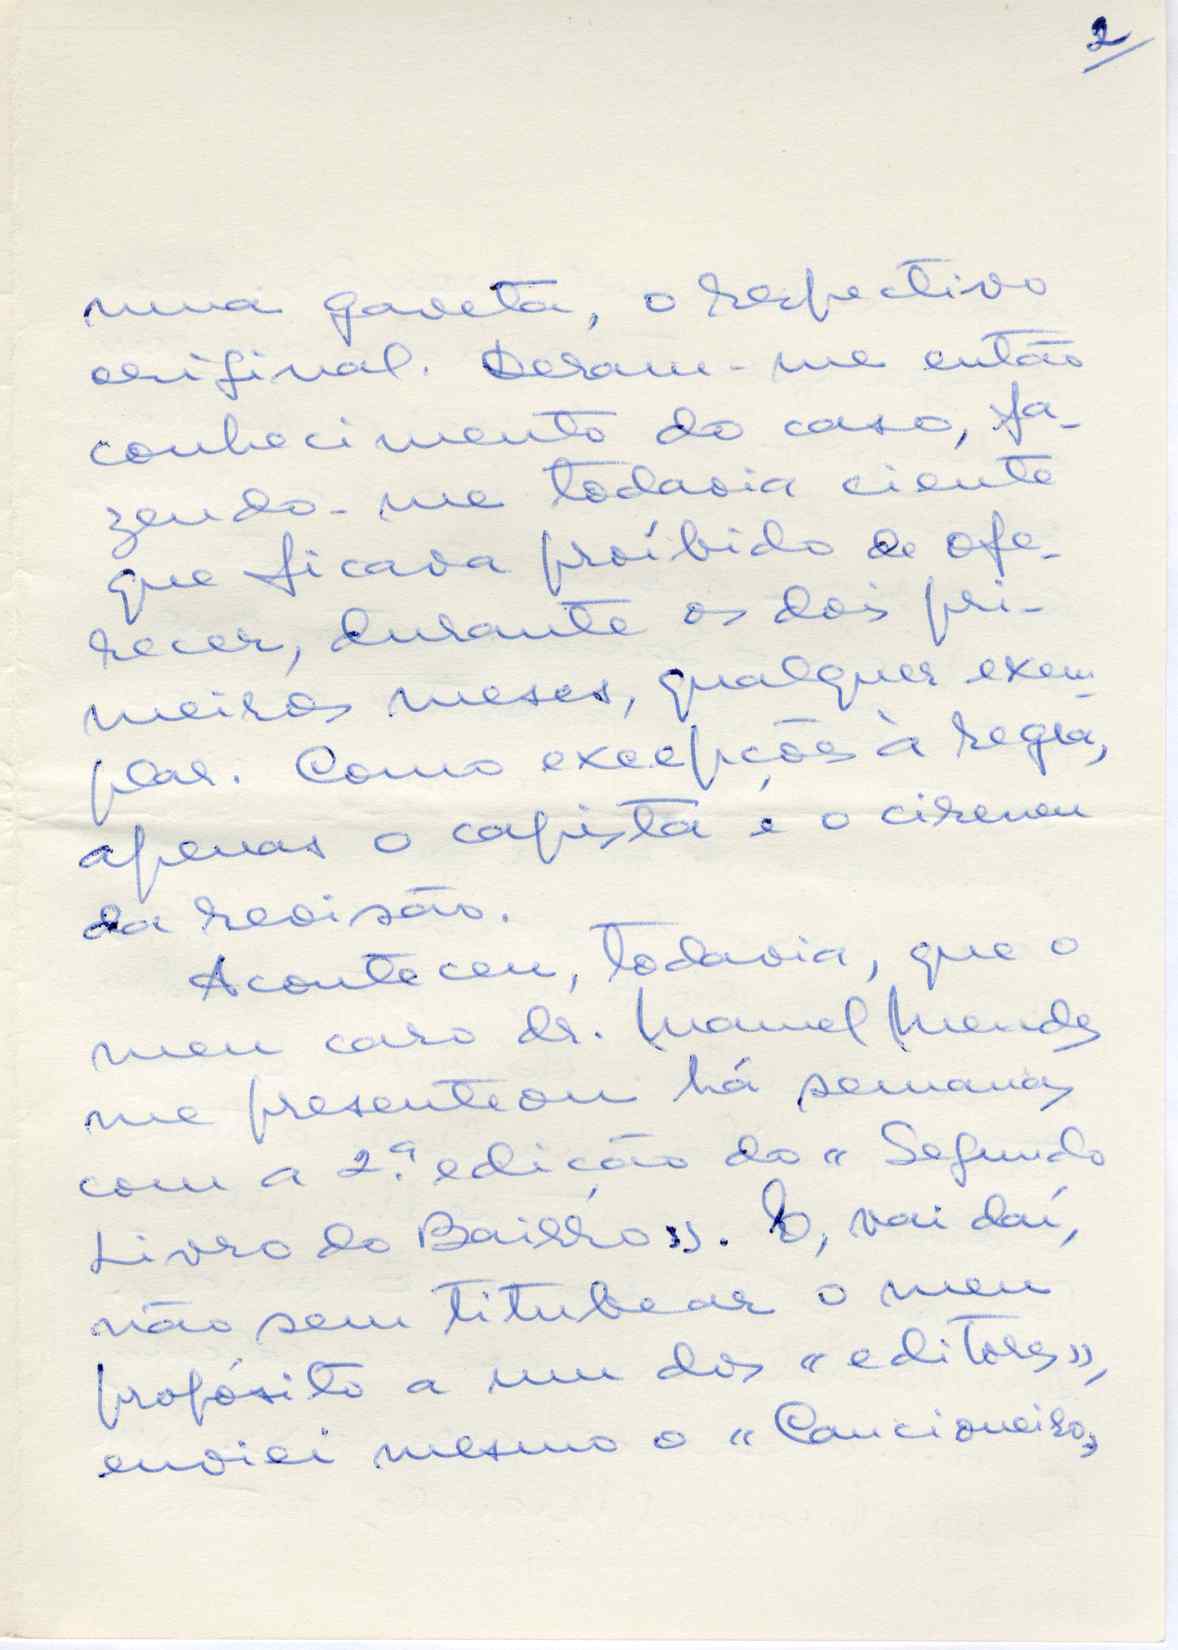 2
numa gaveta, o respectivo
original. Deram-me então
conhecimento do caso, fa-
zendo-me todavia ciente
que ficava proíbido de ofe-
recer, durante os dois pri-
meiros meses, qualquer exem-
plar. Como excepções à regra,
apenas o capista e o cireneu
da revisão.
Aconteceu, todavia, que o
meu caro dr. Manuel Mendes
me presenteou há semanas
com a 2.ª edição do « Segundo
Livro do Bairro ». E, vai daí,
não sem titubear o meu
propósito a um dos « editores »,
enviei mesmo o « Cancioneiro »